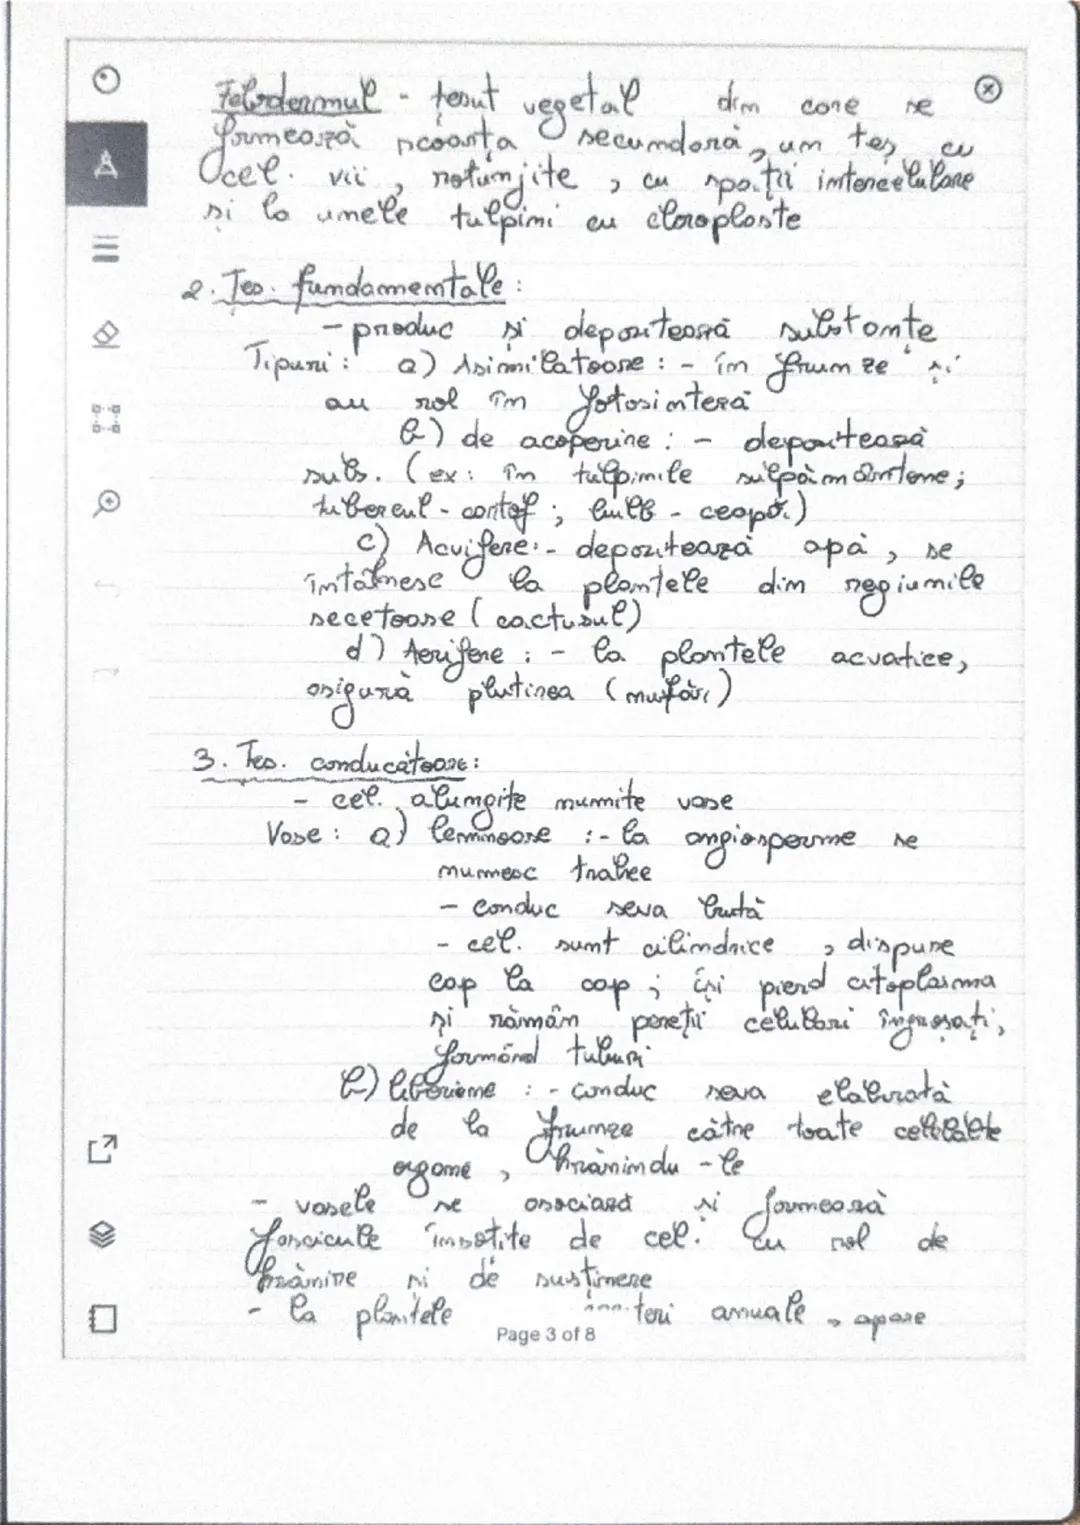 Felodermul - țesut vegetal din care se
formează scoarța secundară, un țes cu
cel. vii, rotunjite, cu spații intercelulare
și la unele tulpini cu cloroplaste
2. Țes. fundamentale:
- produc și depozitează substanțe
Tipuri: a) Asimilatoare: - în frunze și
au rol în fotosinteză
b) de acoperire: - depozitează
subs. (ex: în tulpinile supământene;
tubercul - cartof; bulb - ceapă.)
c) Acvifere: - depozitează apă, se
întâlnesc la plantele din regiunile
secetoase (cactusul)
d) Aerifere: - la plantele acvatice,
asigură plutirea (nufăr)
3. Țes. conducătoare:
- cel. alungite numite vase
Vase: a) lemnoase: - la angiosperme se
numesc trahee
- conduc seva brută
- cel. sunt cilindrice, dispuse
cap la cap; își pierd citoplasma
și rămân pereții celulari îngroșați,
formând tuburi
b) liberiene: - conduc seva elaborată
de la frunze către toate celelalte
organe, hrănindu-le
- vasele se asociază și formează
fascicule însoțite de cel. cu rol de
hrănire și de susținere
- la plantele teri anuale, apare
Page 3 of 8